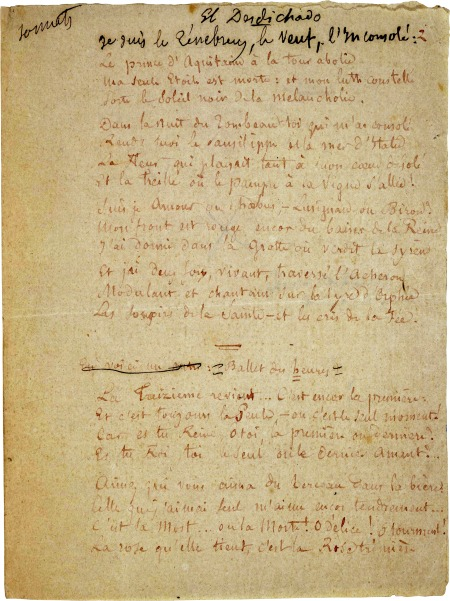 Sonnets
El Desdichado
Je suis le Ténébreux, le Veuf, l'Inconsolé :
Le prince d'Aquitaine à la tour abolie
Ma seule Etoile est morte : et mon luth constellé
Porte le Soleil noir de la Melancholie.
Dans la nuit du Tombeau toi qui m'as consolé
Rends-moi le Pausilippe et la mer d'Italie
La Fleur qui plaisait tant à mon cœur désolé
Et la treille où le pampre à la vigne s'allie !
Suis-je Amour ou Phœbus, - Lusignan ou Biron ?
Mon front est rouge encor du baiser de la Reine
J'ai dormi dans la Grotte où verdit la syrène
Et j'ai deux fois, vivant, traversé l'Acheron
Modulant et chantant sur la lyre d'Orphée
Les soupirs de la Sainte - et les cris de la Fée.
Ballet des heures
La Treizieme revient... C'est encor la première
Et c'est toujours la seule, - ou c'est le seul moment :
Car es tu Reine ô toi, la première ou dernière ?
Es tu Roi toi le seul ou le dernier Amant ?...
Aimez qui vous aima du berceau dans la bière :
Celle que j'aimai seul m'aime encor tendrement...
C'est la Mort... ou la Morte ! O délice ! O tourment !
La rose qu'elle tient, c'est la Rose trémière